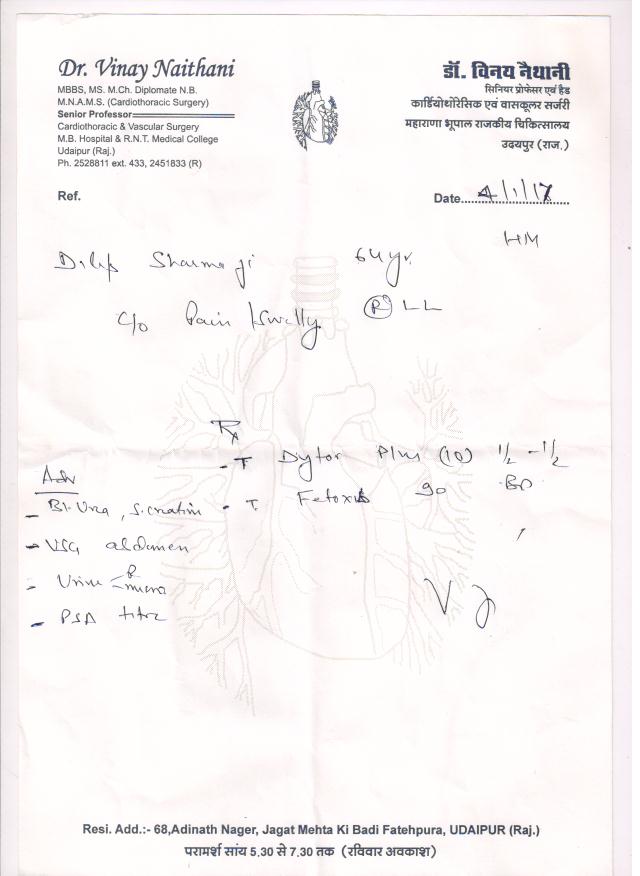 Dr. Vinay Naithani
MBBS, MS. M.Ch. Diplomate N.B.
M.N.A.M.S. (Cardiothoracic Surgery)
Senior Professor
Cardiothoracic & Vascular Surgery
M.B. Hospital & R.N.T. Medical College
Udaipur (Raj.)
Ph. 2528811 ext. 433, 2451833 (R)
डॉ. विनय नैथानी
सिनियर प्रोफेसर एवं हैड
कार्डियोथोरेसिक एवं वासकूलर सर्जरी
महाराणा भूपाल राजकीय चिकित्सालय
उदयपुर (राज.)
Ref.
Date 4/1/17
Sharma ji 64 yr.
c/o Pain (R) LL
Rx
- T Dytor Plus (10) 1/2 - 1/2
T. 90 BD
Adv
- Bl. Urea, S. creatin
- USG abdomen
- Urine R micro
- PSA titre
Resi. Add.:- 68,Adinath Nager, Jagat Mehta Ki Badi Fatehpura, UDAIPUR (Raj.)
परामर्श सांय 5.30 से 7.30 तक (रविवार अवकाश)